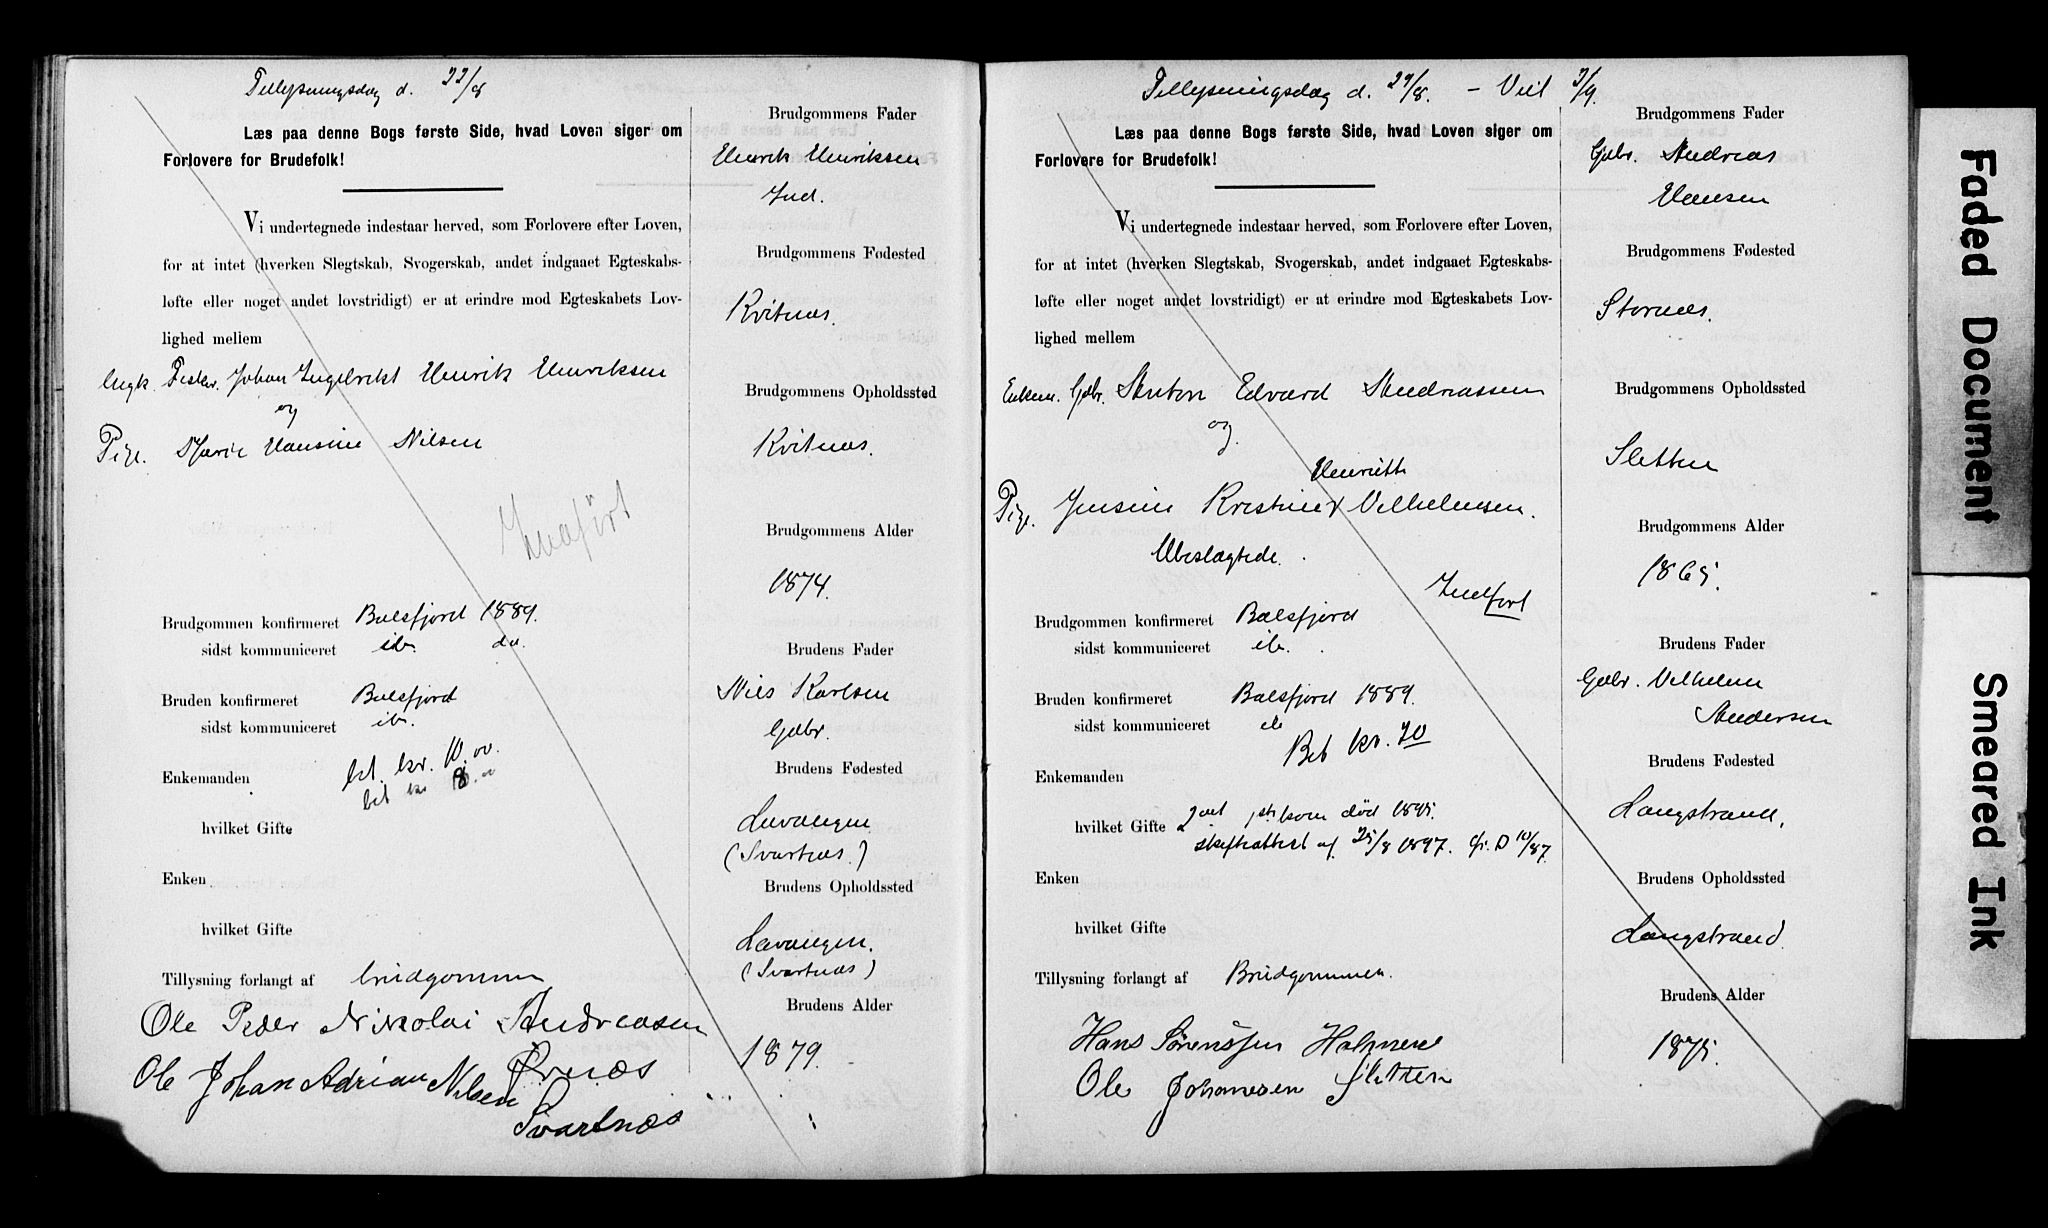 Tillysningsdag d. 22/8
Læs paa denne Bogs første Side, hvad Loven siger om
Forlovere for Brudefolk!
Vi undertegnede indestaar herved, som Forlovere efter Loven,
for at intet (hverken Slegtskab, Svogerskab, andet indgaaet Egteskabs-
løfte eller noget andet lovstridigt) er at erindre mod Egteskabets Lov-
lighed mellem
Ungk. Fisker. Johan Ingebrikt Henrik Henriksen
og
Pige. Marie Hansine Nilsen
Indført
Brudgommen konfirmeret Balsfjord 1889.
sidst kommuniceret ib. do.
Bruden konfirmeret Balsfjord
sidst kommuniceret ib.
Enkemanden bet. kr. 10.00.
bet kr 8.00
hvilket Gifte
Enken
hvilket Gifte
Tillysning forlangt af brudgommen
Ole Peder Nikolai Andreasen
Ørnæs
Ole Johan Adrian Nilsen
Svartnæs
Brudgommens Fader
Henrik Henriksen
Ind.
Brudgommens Fødested
Kvitnæs.
Brudgommens Opholdssted
Kvitnæs.
Brudgommens Alder
1874.
Brudens Fader
Nils Karlsen
Gdbr.
Brudens Fødested
Lavangen
(Svartnæs.)
Brudens Opholdssted
Lavangen.
(Svartnæs)
Brudens Alder
1879.
Tillysningsdag d. 29/8. – Viet 7/9.
Læs paa denne Bogs første Side, hvad Loven siger om
Forlovere for Brudefolk!
Vi undertegnede indestaar herved, som Forlovere efter Loven,
for at intet (hverken Slegtskab, Svogerskab, andet indgaaet Egteskabs-
løfte eller noget andet lovstridigt) er at erindre mod Egteskabets Lov-
lighed mellem
Enkem. Gdbr. Anton Edvard Andreassen
og
Henriette
Pige. Jensine Kristine Vilhelmsen.
Ubeslægtede.
Indført
Brudgommen konfirmeret Balsfjord
sidst kommuniceret ib.
Bruden konfirmeret Balsfjord 1889.
sidst kommuniceret ib
Bet kr. 20
Enkemanden
hvilket Gifte 2net, 1ste kone død 1895.
skifteattest af 25/8 1897.
Enken
hvilket Gifte
Tillysning forlangt af Brudgommen.
Hans Sørenssen Holmenes
Ole Johanesen Sletten
Brudgommens Fader
Gdbr. Andreas
Hansen
Brudgommens Fødested
Stornes.
Brudgommens Opholdssted
Sletten
Brudgommens Alder
1865.
Brudens Fader
Gdbr. Vilhelm
Andersen
Brudens Fødested
Langstrand.
Brudens Opholdssted
Langstrand.
Brudens Alder
1875.
Faded Document
Smeared Ink